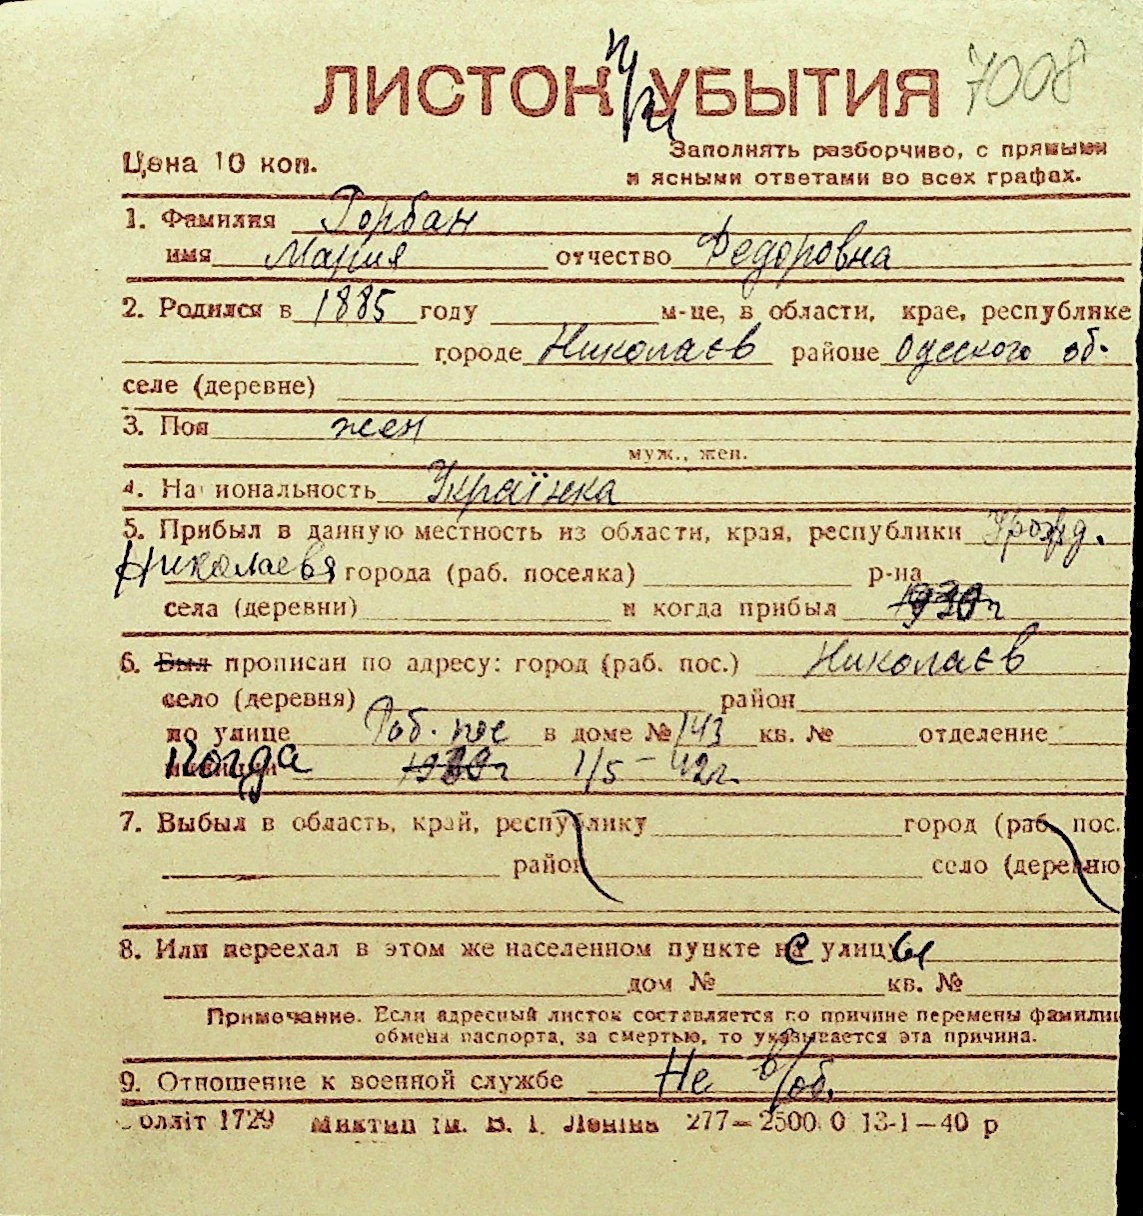 ЛИСТОК УБЫТИЯ 7008
Цена 10 коп.
Заполнять разборчиво, с прямыми
и ясными ответами во всех графах.
1. Фамилия Горбан
имя Мария отчество Федоровна
2. Родился в 1885 году м-це, в области, крае, республике
городе Николаєв районе Одесского об.
селе (деревне)
3. Пол жен
муж., жен.
4. Национальность Українка
5. Прибыл в данную местность из области, края, республики Урожд.
Николаева города (раб. поселка) р-на
села (деревни) и когда прибыл 1930г
6. Был прописан по адресу: город (раб. пос.) Николаєв
село (деревня) район
по улице Раб. пос в доме № 143 кв. № отделение
милиции Когда 1/5-42г.
7. Выбыл в область, край, республику город (раб. пос.
район село (деревню
8. Или переехал в этом же населенном пункте на улицу
дом № кв. №
Примечание. Если адресный листок составляется по причине перемены фамилии
обмена паспорта, за смертью, то указывается эта причина.
9. Отношение к военной службе Не в/об.
олліт 1729 Миктип ім. В. І. Леніна 277—2500 0 13-1—40 р